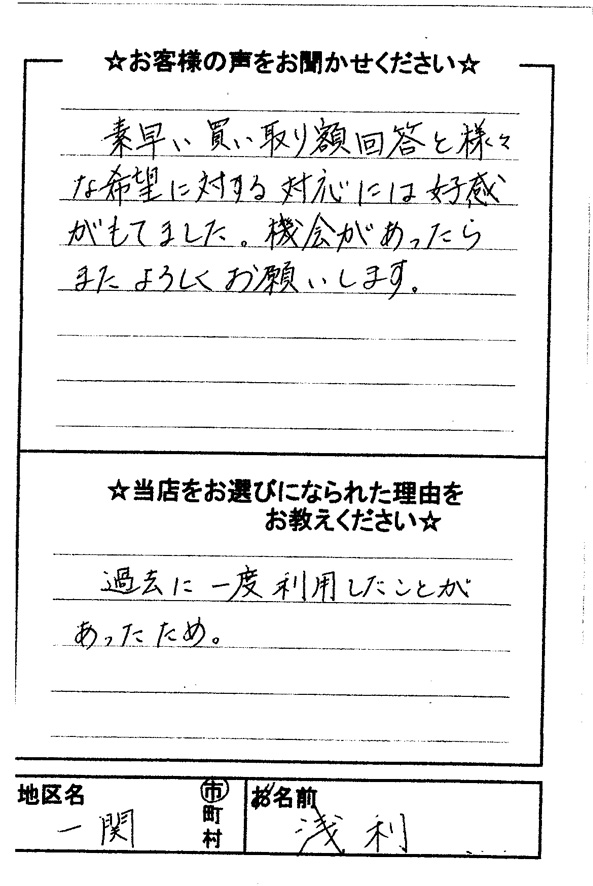 ☆お客様の声をお聞かせください☆
素早い買い取り額回答と様々
な希望に対する対応には好感
がもてました。機会があったら
またよろしくお願いします。
☆当店をお選びになられた理由を
お教えください☆
過去に一度利用したことが
あったため。
地区名
一関
市
町
村
お名前
浅利